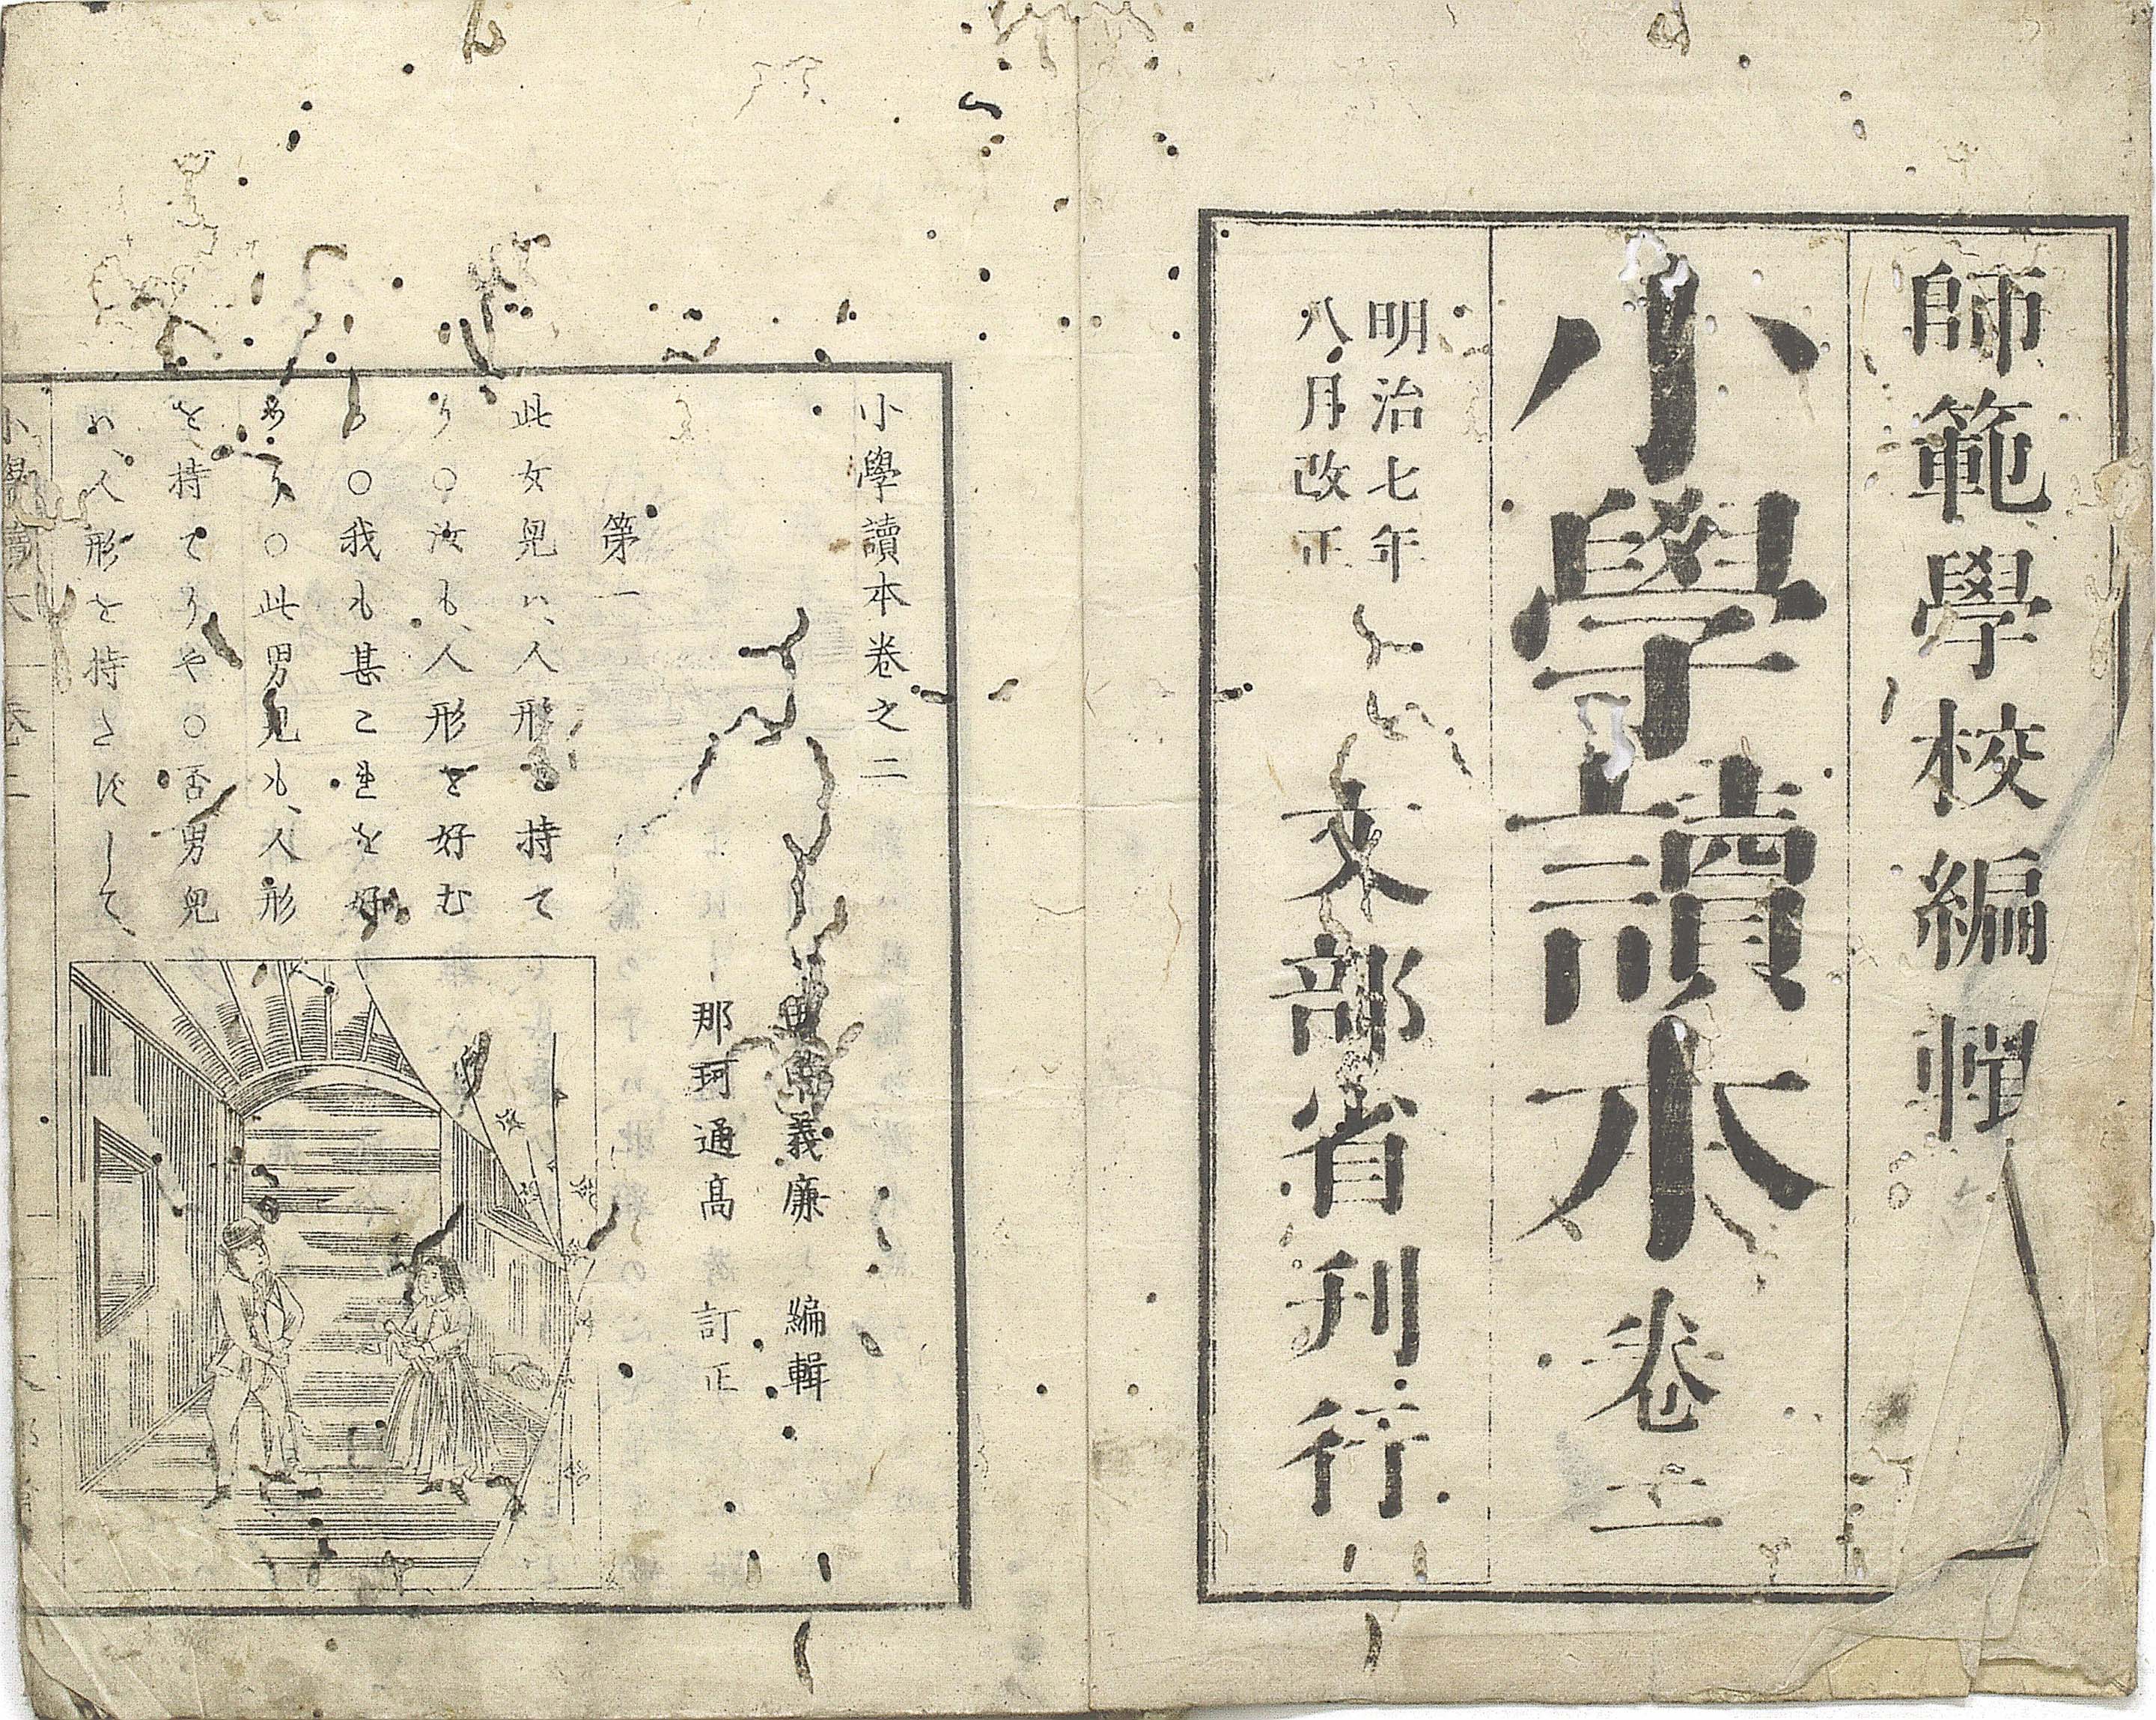 師範學校編輯
小學讀本卷二
明治七年
八月改正
文部省刊行
小學讀本卷之二
義廉 編輯
那珂通高 訂正
第一
此女兒ハ、人形を持て
り○汝も、人形を好む
○我も甚これを好
あり○此男兒も、人形
を持てりや○否男兒
ハ、人形を持たずして
小學讀本 卷二